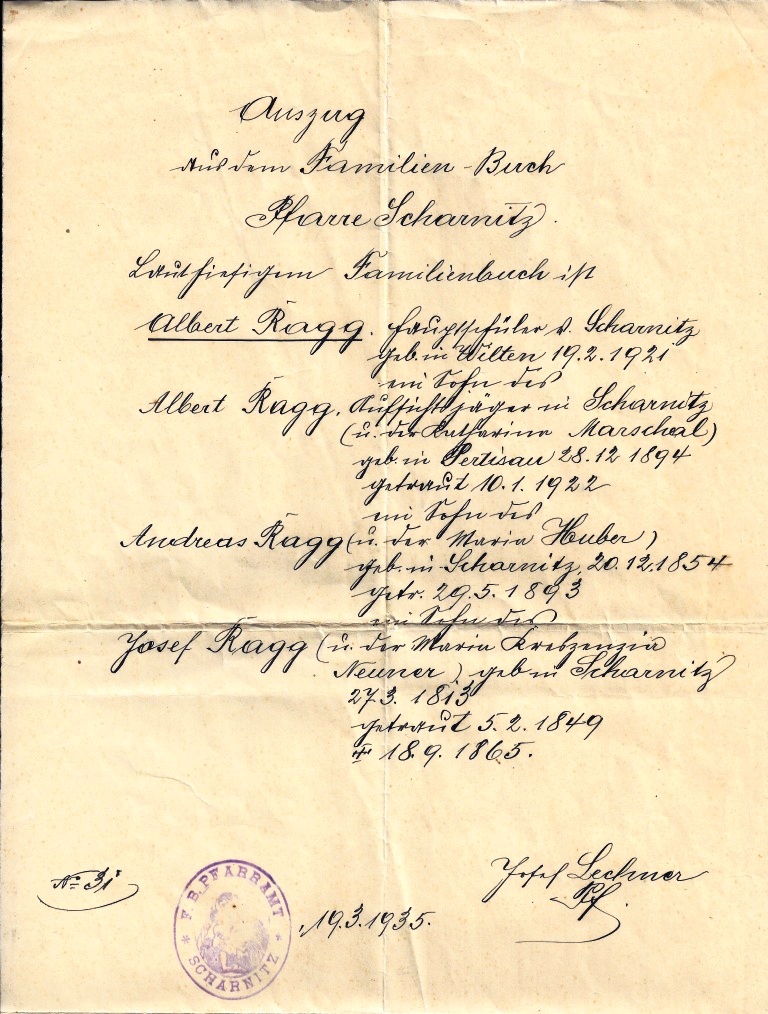 Auszug
aus dem Familien-Buch
Pfarre Scharnitz.
Laut hiesigem Familienbuch ist
Albert Ragg. Hauptschüler v. Scharnitz
geb. in Wilten 19.2.1921
ein Sohn des
Albert Ragg, Aufsichtsjäger in Scharnitz
(u. der Katharina Marschal)
geb. in Pertisau 28.12 1894
getraut 10.1.1922
ein Sohn des
Andreas Ragg (u. der Maria Huber)
geb. in Scharnitz, 20.12.1854
getr. 29.5.1893
ein Sohn des
Josef Ragg (u. der Maria Kreszenzia
Neuner) geb in Scharnitz
27.3. 1813
getraut 5.2.1849
18.9.1865.
Josef Lechner
Pf.
No 31
F.B. PFARRAMT
SCHARNITZ
, 19.3.1935.